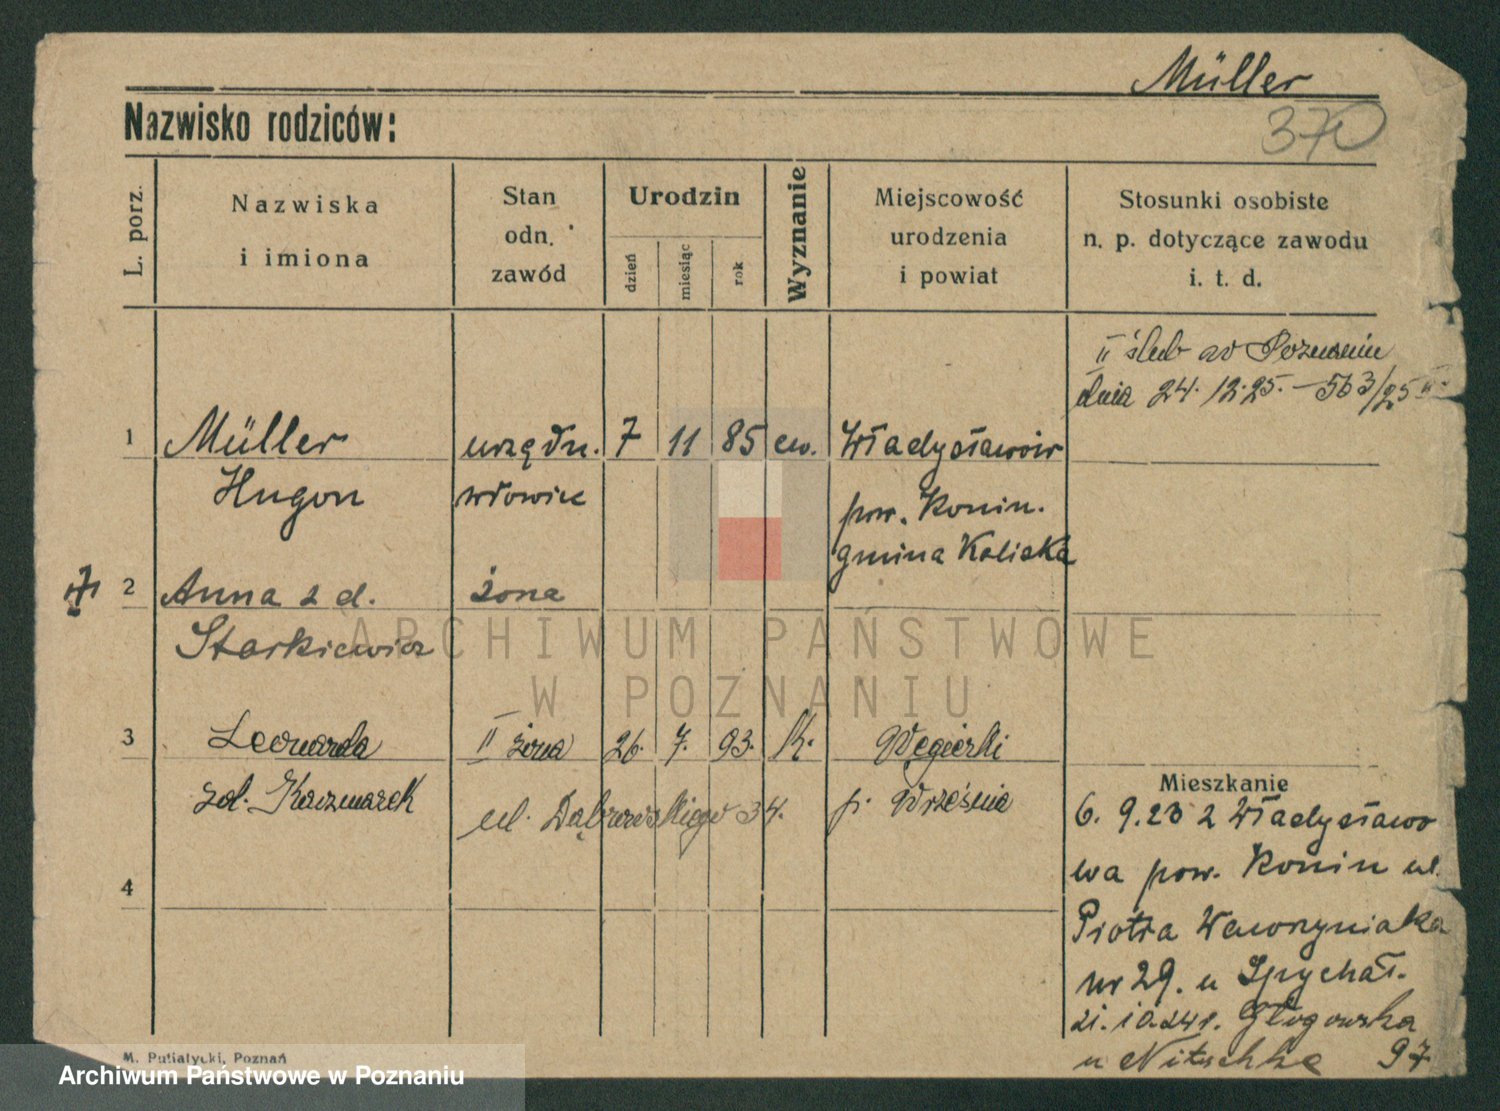 Müller
Nazwisko rodziców:
370
L. porz.
Nazwiska
i imiona
Stan
odn.
zawód
Urodzin
dzień
miesiąc
rok
Wyznanie
Miejscowość
urodzenia
i powiat
Stosunki osobiste
n. p. dotyczące zawodu
i. t. d.
II ślub w Poznaniu
dnia 24. 12. 25. – 563/25
1 Müller urzędn. 7 11 85 ew. Władysławów
Hugon wdowiec pow. Konin.
gmina Koliska
2 Anna z d. żona
Starkiewicz
ARCHIWUM PAŃSTWOWE
W POZNANIU
3 Leonarda II żona 26. 7. 93. K. Węgierki
zd. Kaczmarek ul. Dąbrowskiego 34. p. Września
4
Mieszkanie
6. 9. 23 z Władysławo
wa pow. Konin ul.
Piotra Wawrzyniaka
nr 29. u Spychał.
21. 10. 24 r. Głogowska
u Nitschke 97
M. Putiatycki, Poznań
Archiwum Państwowe w Poznaniu